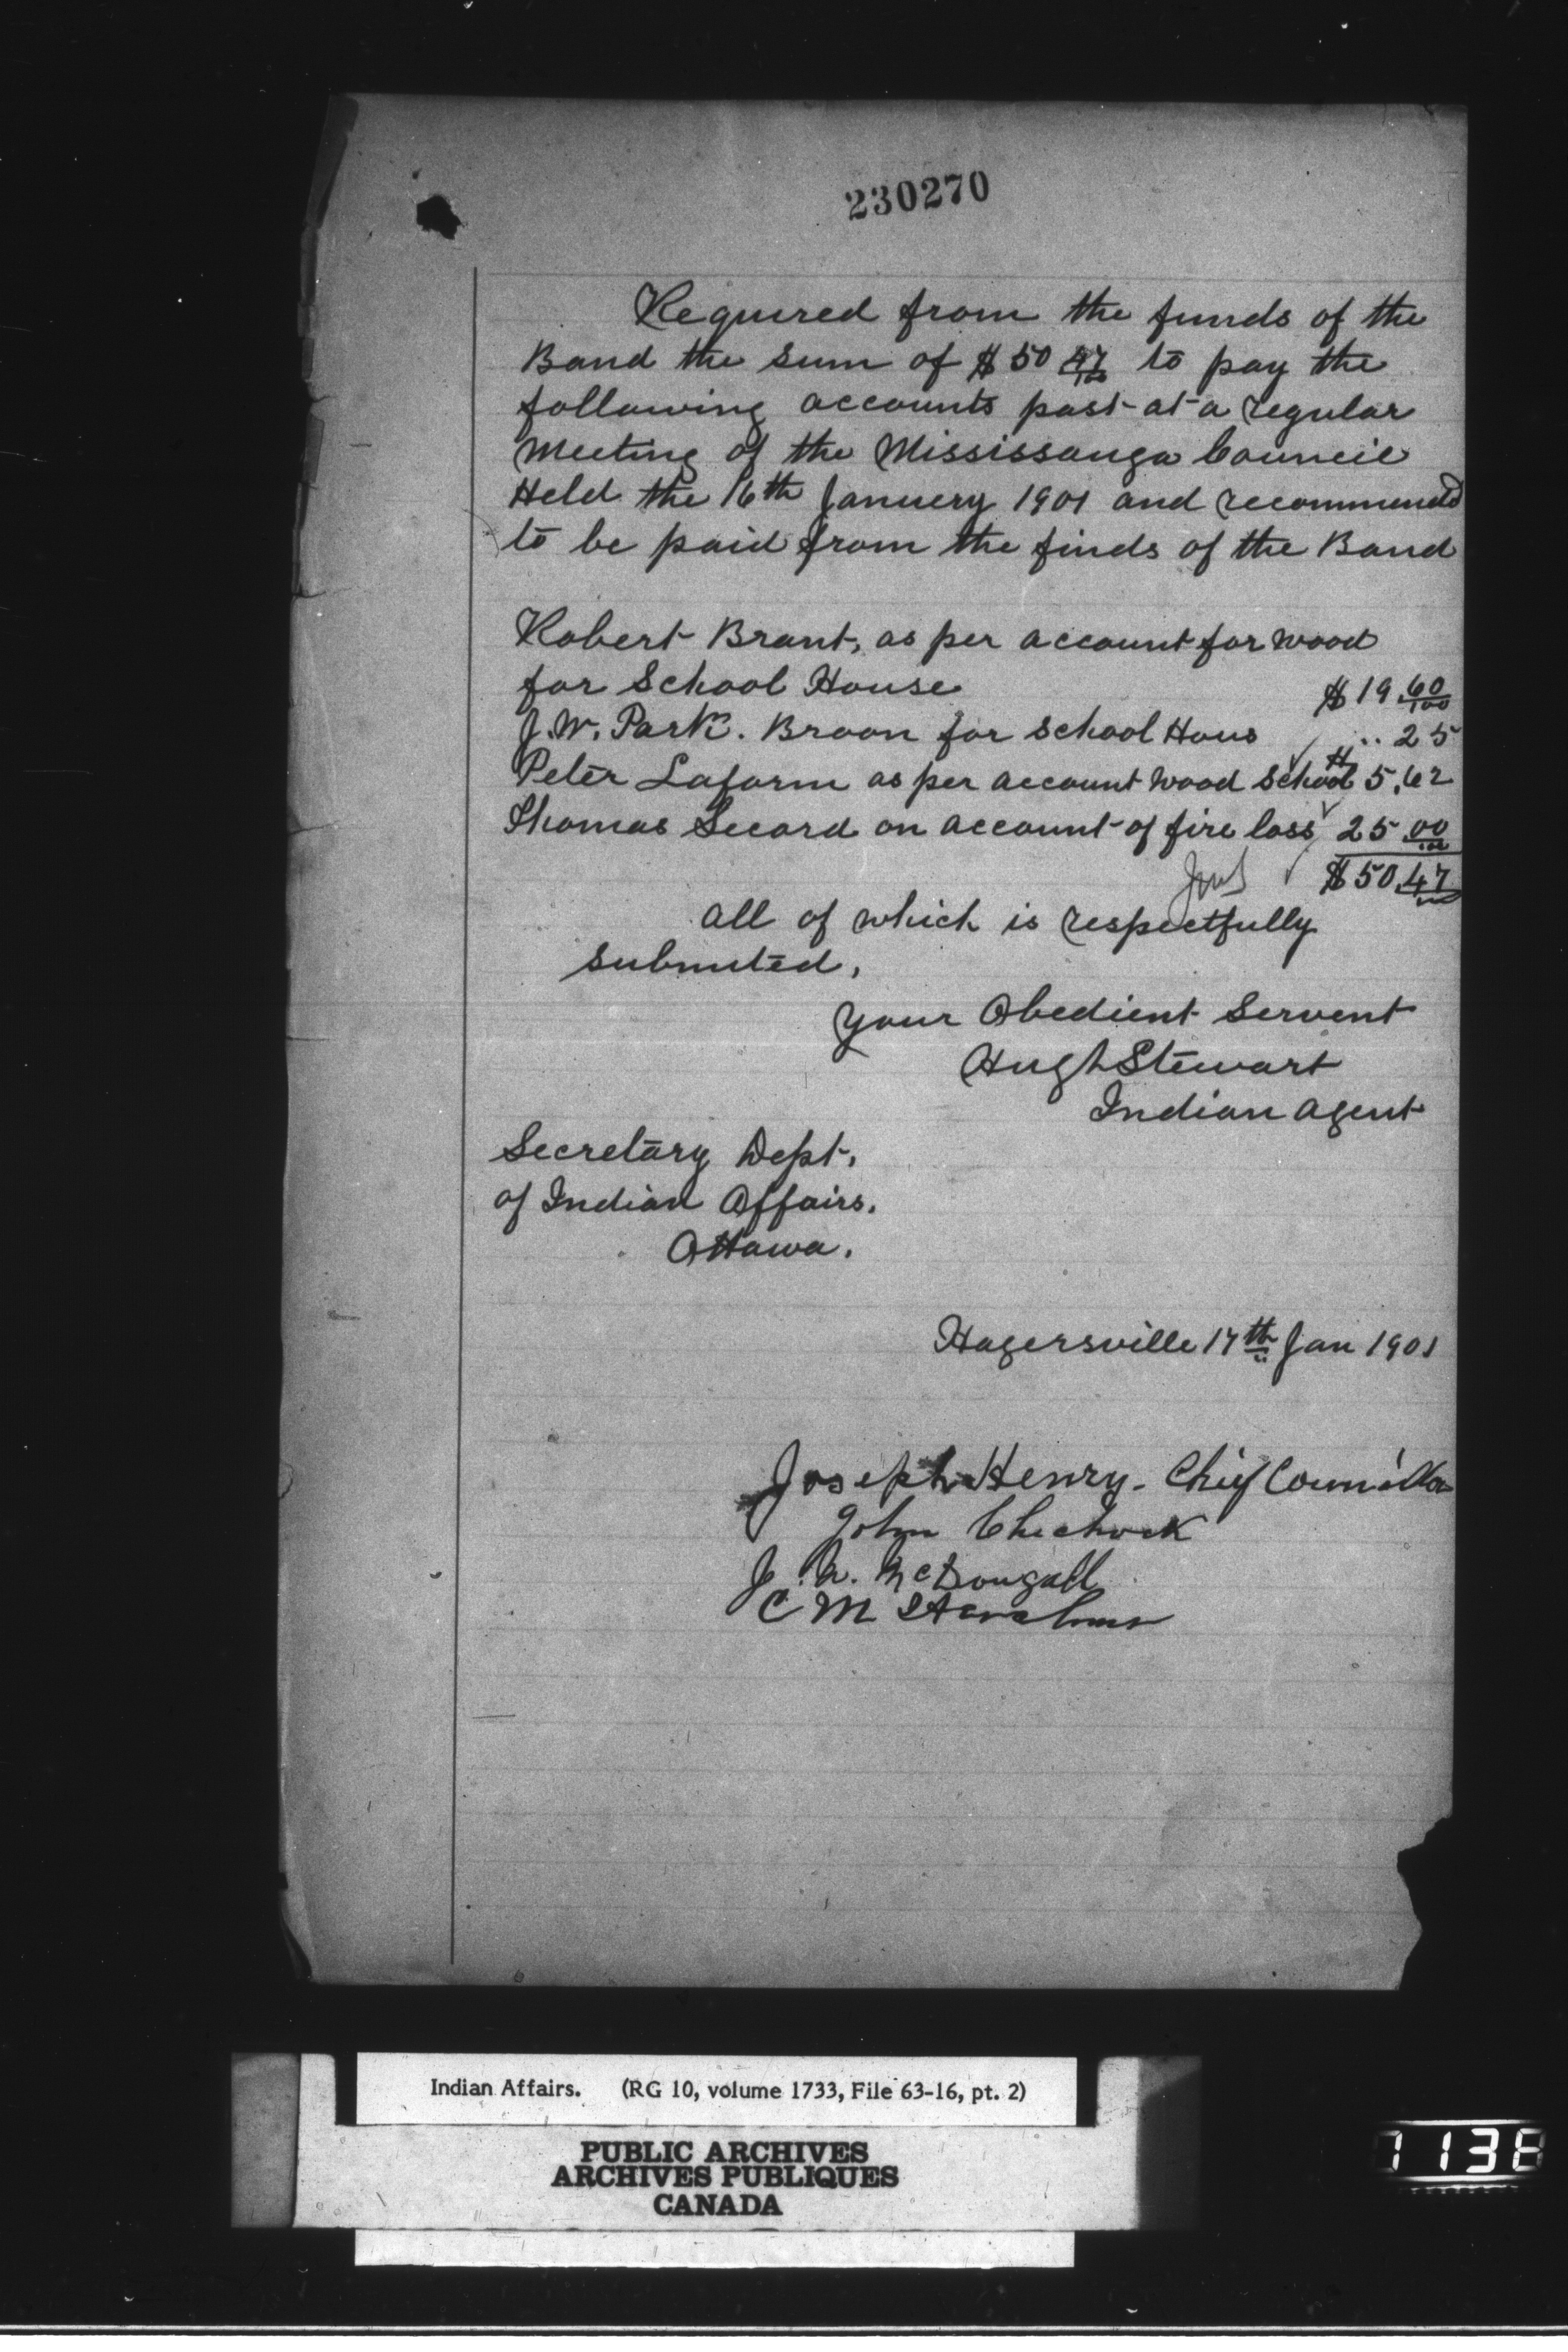 230270
Required from the funds of the
Band the sum of $ 50 47/100 to pay the
following accounts past at a regular
Meeting of the Mississauga Council
Held the 16th Januery 1901 and recommended
to be paid from the finds of the Band
Robert Brant, as per account for wood
for School House $ 19 60/100
J. W. Park. Broon for School Hous .. 25
Peter Laform as per account wood School H 5.62
Thomas Secord on account of fire loss 25 00/100
$ 50.47
all of which is respectfully
submited,
your Obedient Servent
Hugh Stewart
Indian Agent
Secretary Dept,
of Indian Affairs.
Ottawa.
Hagersville 17th Jan 1901
Joseph Henry. Chief Councillor
John Chechock
J. A. McDougall
C M
Indian Affairs. (RG 10, volume 1733, File 63-16, pt. 2)
PUBLIC ARCHIVES
ARCHIVES PUBLIQUES
CANADA
1138